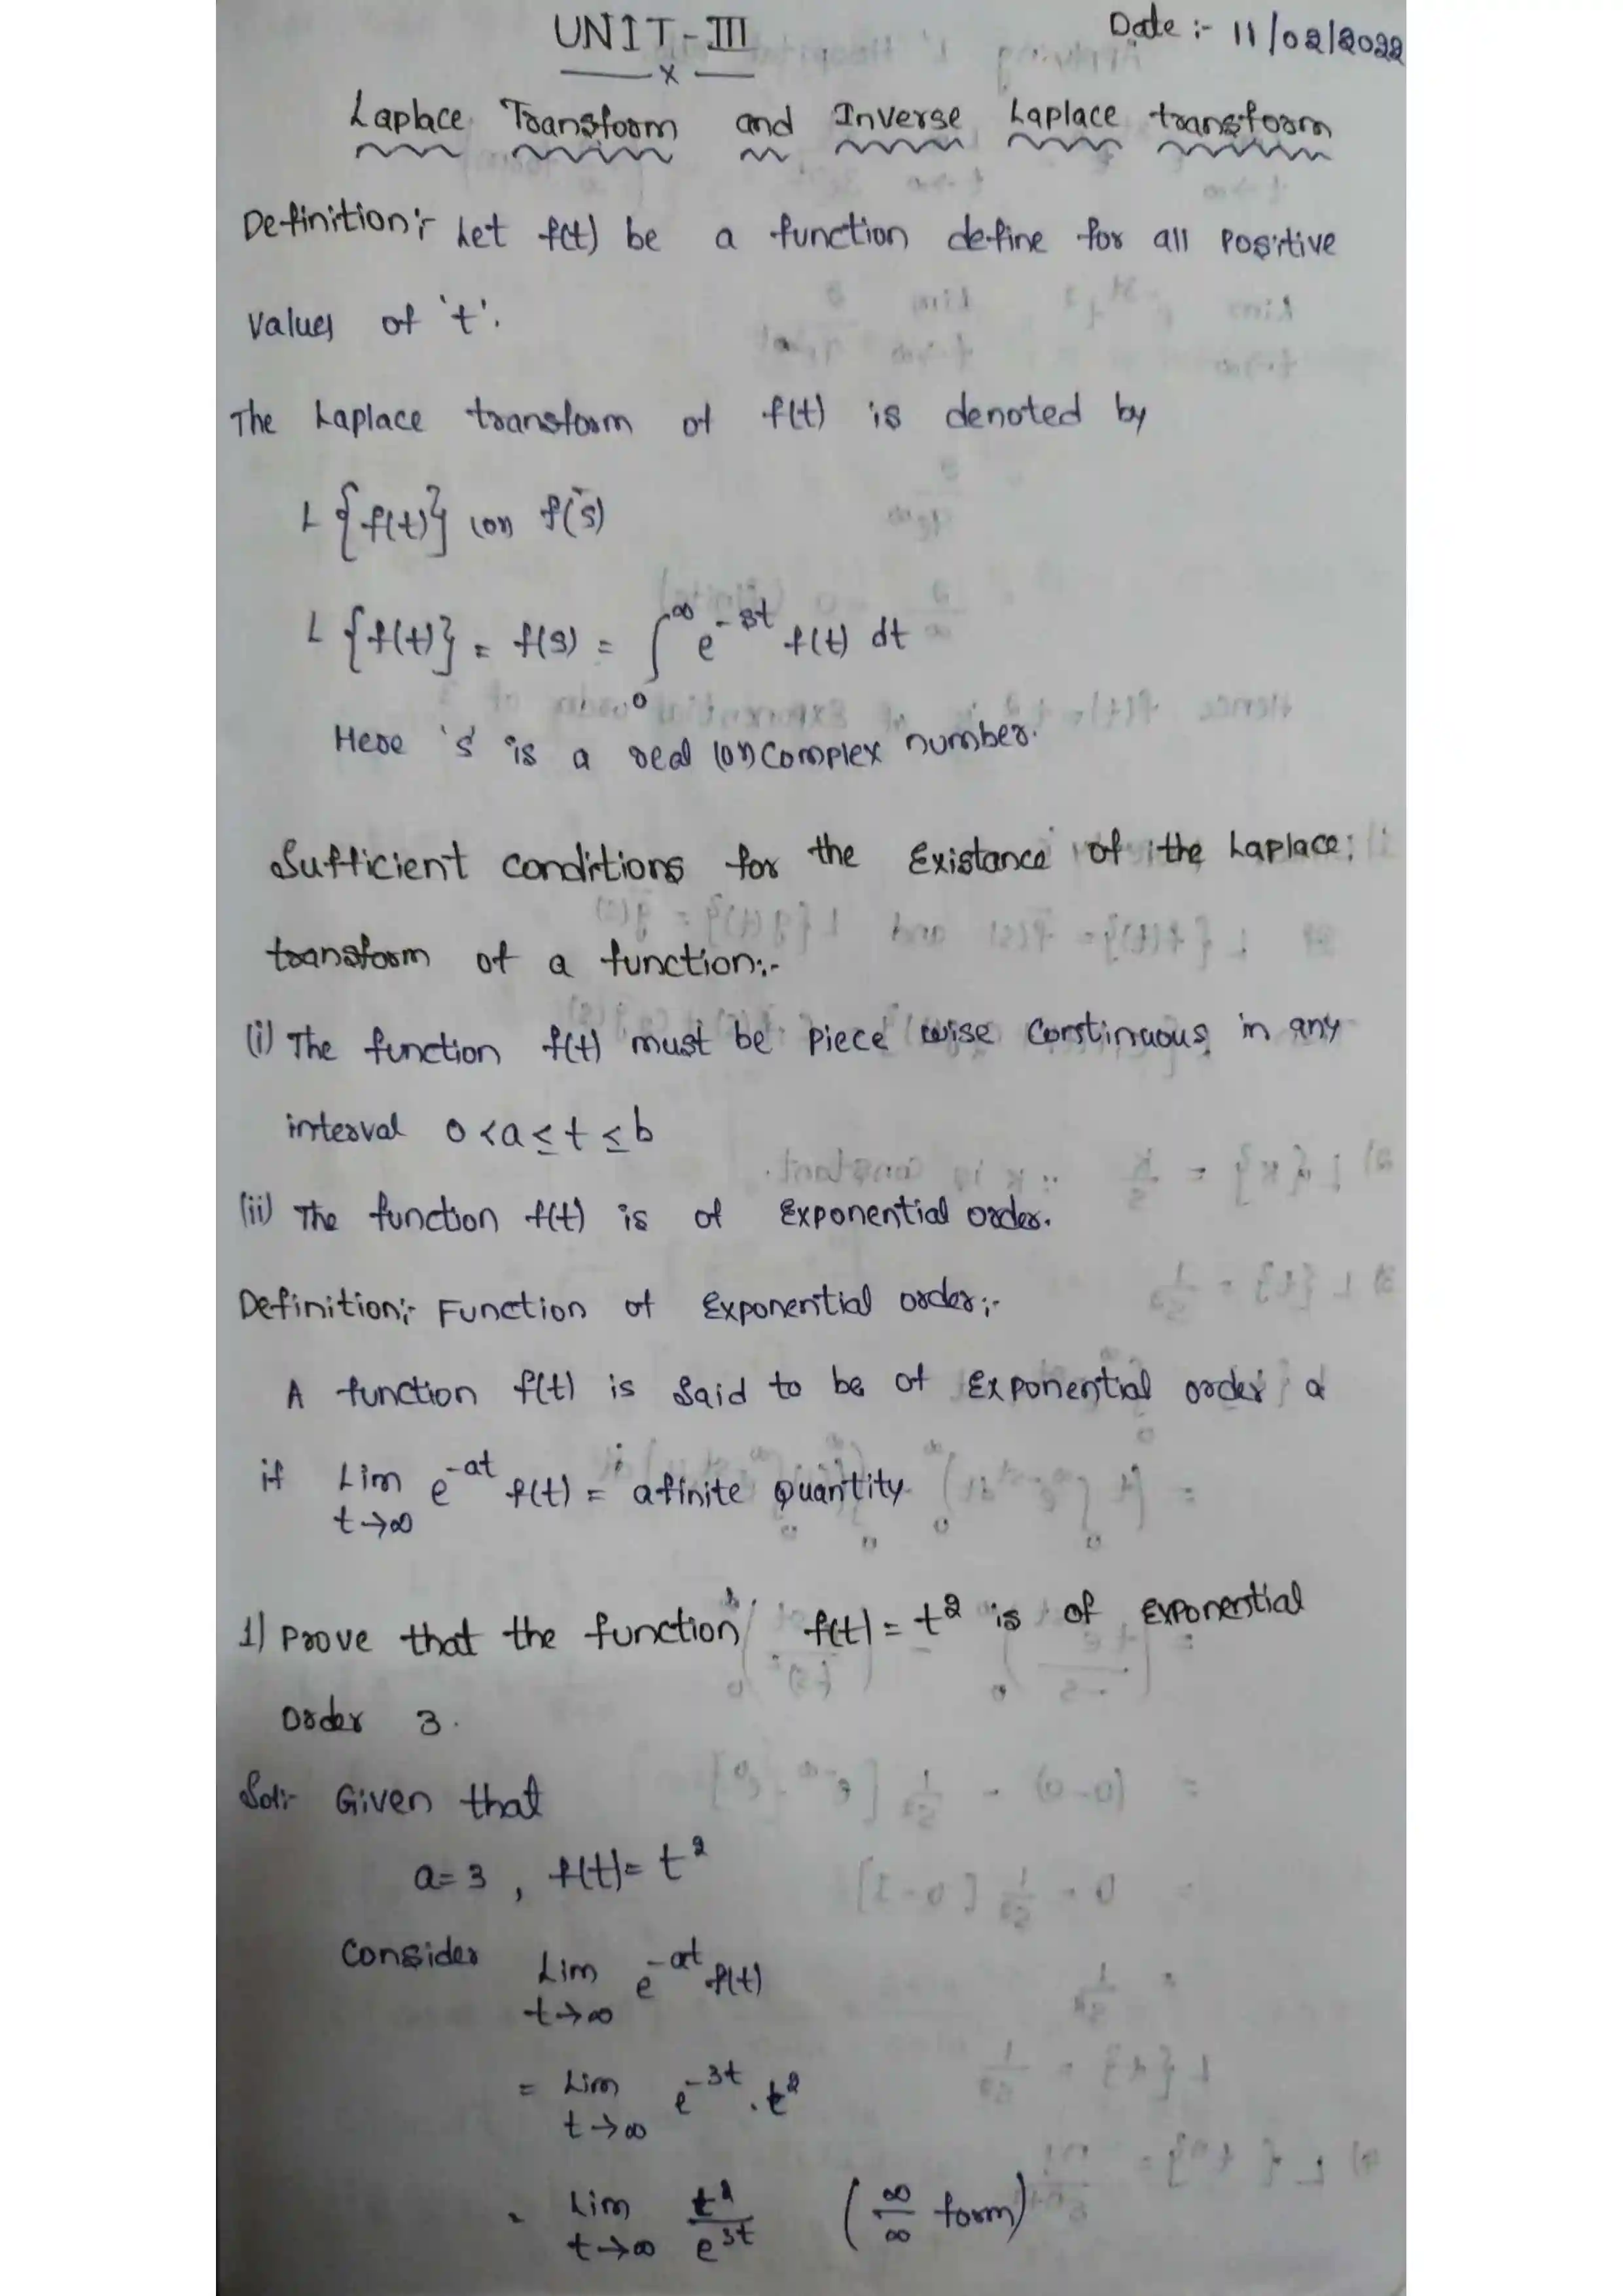 UNIT-III
Date :- 11/02/2022
x
Laplace Transform and Inverse Laplace transform
Definition:- Let f(t) be a function define for all positive
values of 't'.
The Laplace transform of f(t) is denoted by
L{f(t)} (or) f̄(s)
L{f(t)} = f(s) = ∫₀^∞ e^{-st} f(t) dt
Here 's' is a real (or) complex number.
Sufficient conditions for the Existance of the Laplace
transform of a function:-
(i) The function f(t) must be piece wise continuous in any
interval 0<a≤t≤b
(ii) The function f(t) is of Exponential order.
Definition:- Function of Exponential order:-
A function f(t) is said to be of Exponential order a
if Lim t→∞ e^{-at} f(t) = a finite Quantity
1) Prove that the function f(t) = t² is of Exponential
order 3.
Sol:- Given that
a=3, f(t)= t²
Consider Lim t→∞ e^{-at} f(t)
= Lim t→∞ e^{-3t}.t²
= Lim t→∞ t²/e^{3t} (∞/∞ form)